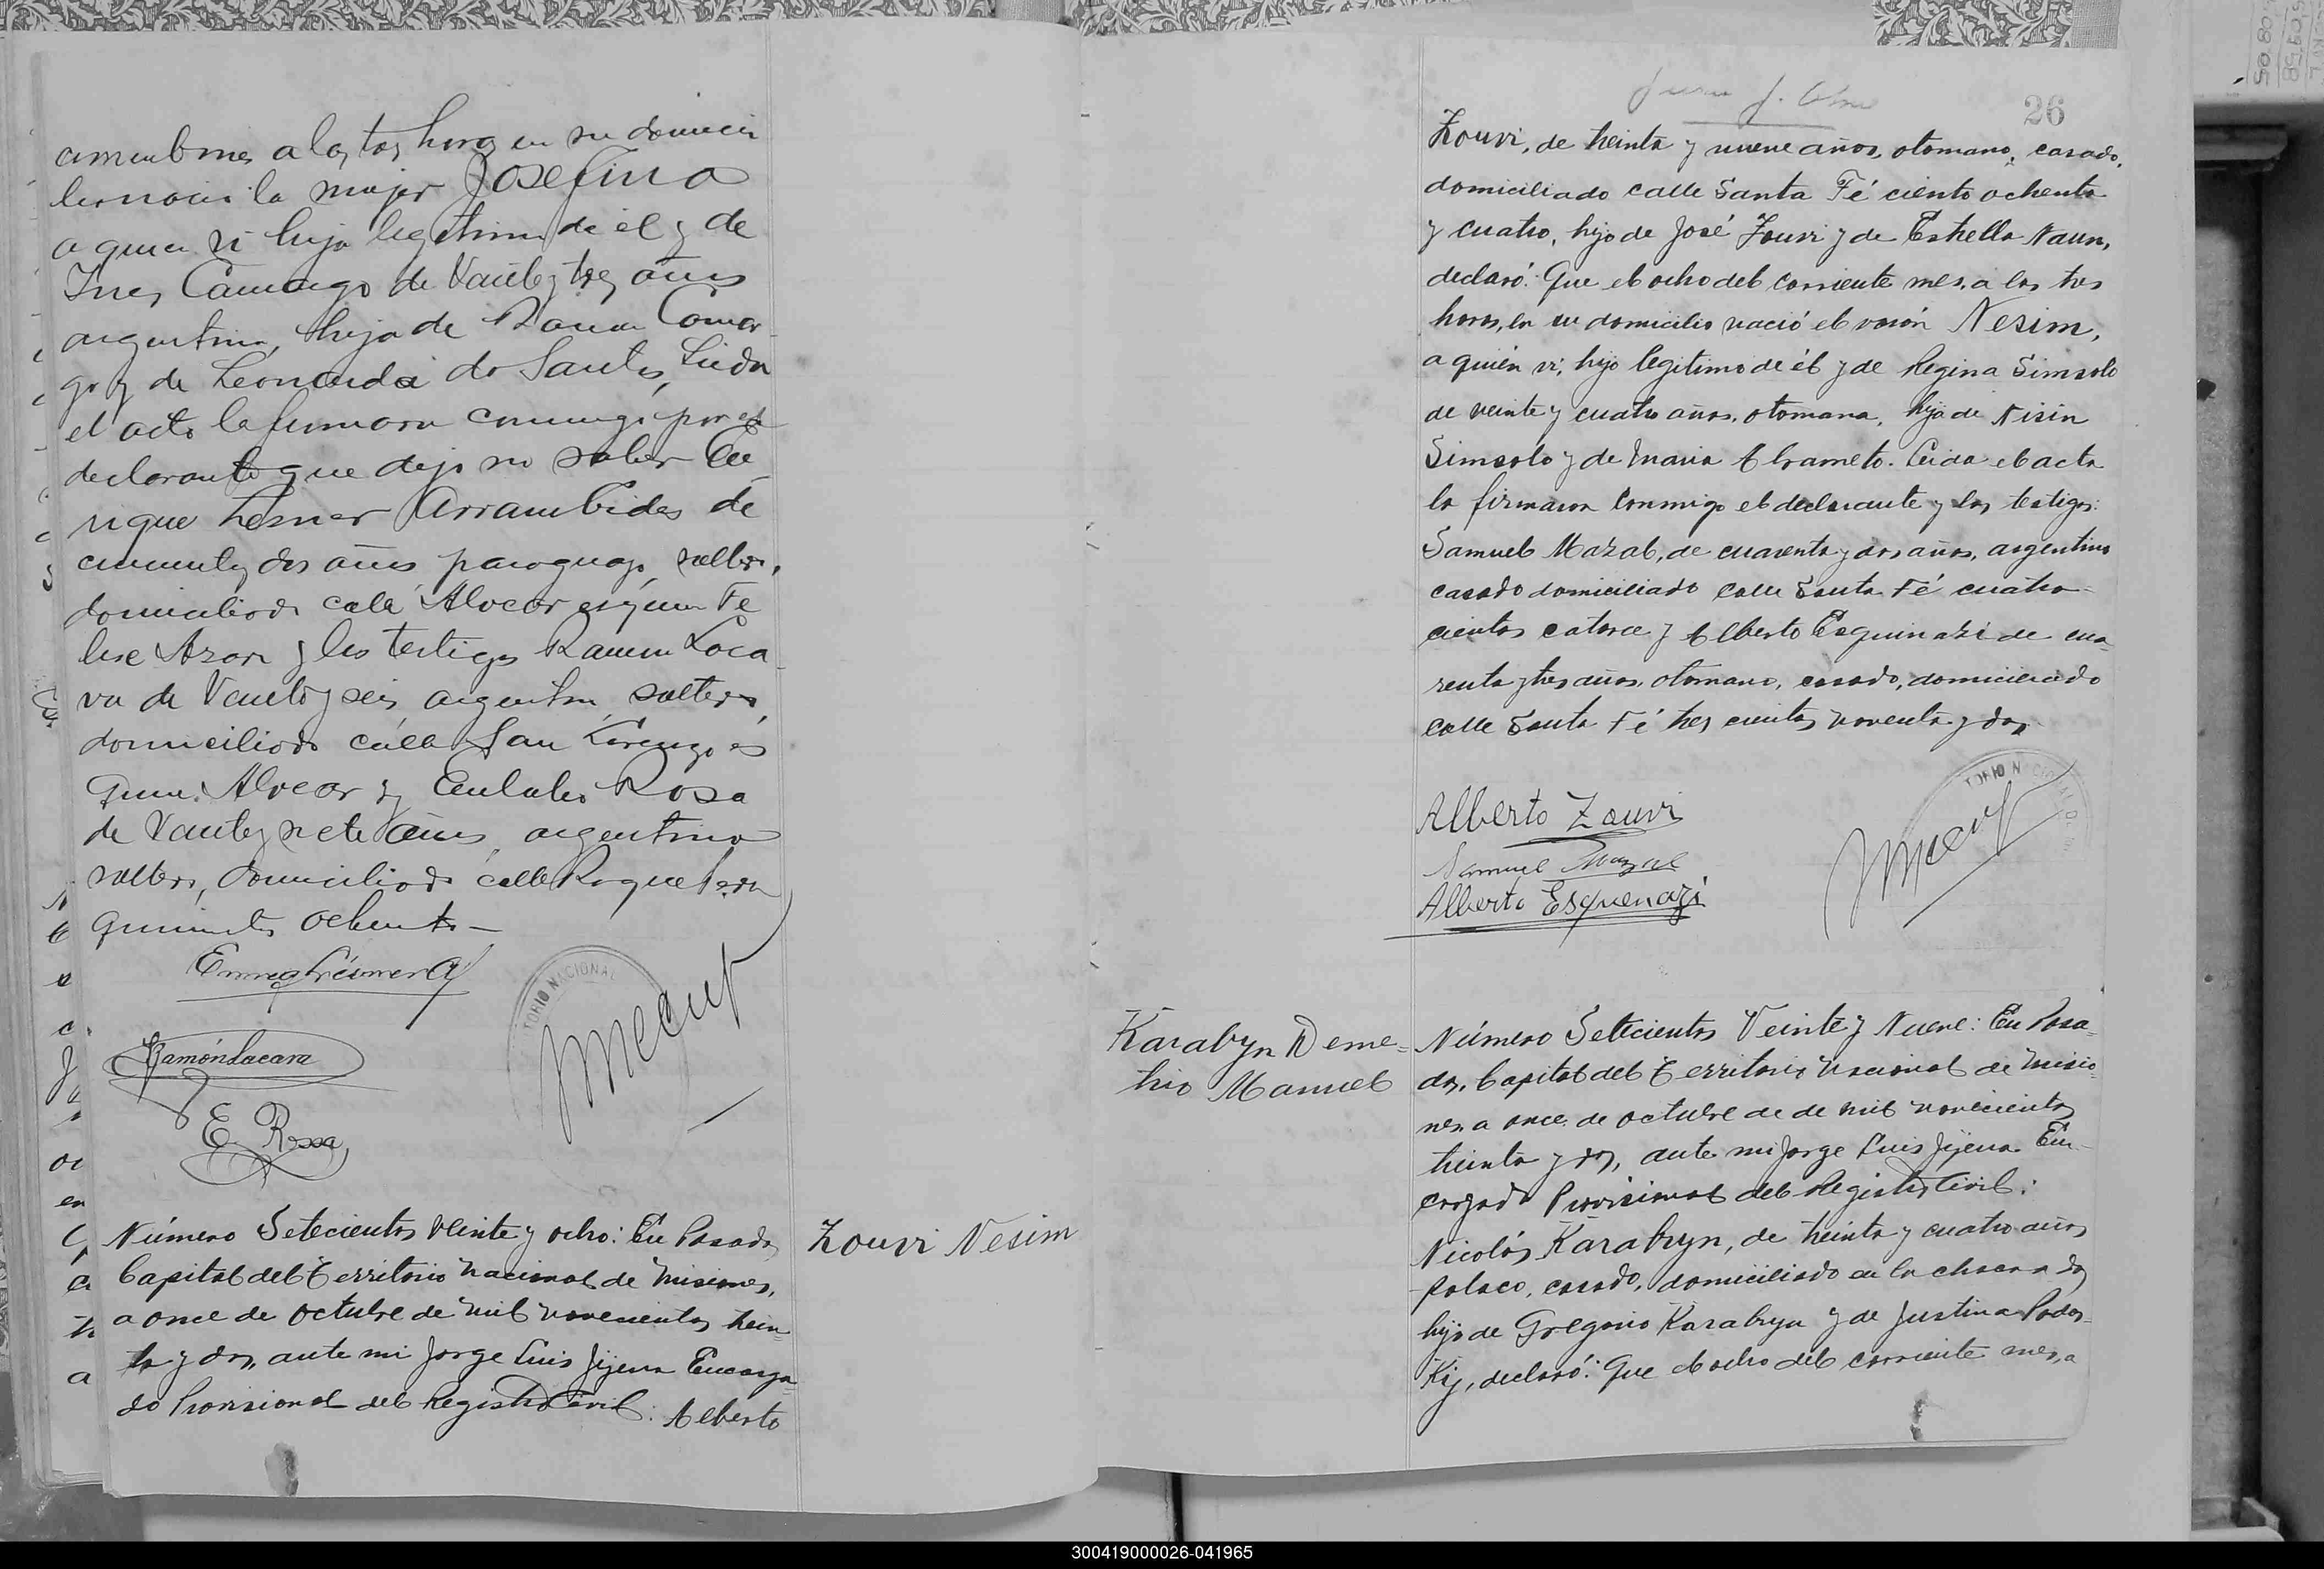 a las tres horas en su domici
lio nació la mujer Josefina
a quien vi hija legitima de él y de
Ines Camargo de Veinte y tres años
argentina, hija de Ramon Camar
go y de Leonarda do Santos, Leida
el acta la firmaron conmigo por el
declarante que dijo no saber En
rique Lesner Arrambides de
cincuenta y dos años paraguayo, soltero,
domiciliado calle Alvear esquina Fe
lix Azara y los testigos Ramon Laca
va de Veinte y seis argentino, soltero,
domiciliado calle San Lorenzo es
quina Alvear y Eulalio Rosa
de Veinte y siete años, argentino
soltero, domiciliado calle Roque Perez
quinientos ochenta
Ramón Lacava
E. Rosa
Número Setecientos Veinte y ocho: En Posadas
Capital del Territorio Nacional de Misiones,
a once de octubre de mil novecientos trein
ta y dos, ante mi Jorge Luis Jijena Encarga
do Provisional del Registro Civil: Alberto
Zouvi Nesim
26
Zouvi, de treinta y nueve años, otomano, casado,
domiciliado calle Santa Fé ciento ochenta
y cuatro, hijo de José Zouvi y de Estrella Naun,
declaró: Que el ocho del corriente mes, a las tres
horas, en su domicilio nació el varón Nesim,
a quién vi, hijo legitimo de él y de Regina Simsolo
de veinte y cuatro años, otomana, hija de Nisin
Simsolo y de Maria Abrameto. Leida el acta
la firmaron conmigo el declarante y los testigos:
Samuel Mazal, de cuarenta y dos años, argentino
casado domiciliado calle Santa Fé cuatro-
cientos catorce y Alberto Esquinazi de cua-
renta y tres años, otomano, casado, domiciliado
calle Santa Fé tres cientos noventa y dos
Alberto Zouvi
Samuel Mazal
Alberto Esquenazi
Karabyn Deme=
trio Manuel
Número Setecientos Veinte y Nueve: En Posa-
das, Capital del Territorio Nacional de Misio-
nes, a once de octubre de de mil novecientos
treinta y dos, ante mi Jorge Luis Jijena En-
cargado Provisional del Registro Civil:
Nicolás Karabyn, de treinta y cuatro años,
polaco, casado, domiciliado en la chacra dos
hijo de Gregorio Karabyn y de Justina Podos-
Kij, declaró: Que el ocho del corriente mes, a
300419000026-041965